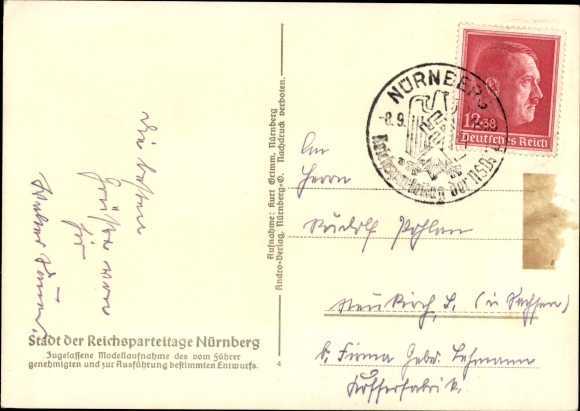 Die besten
Grüße von
Stadt der Reichsparteitage Nürnberg
Zugelassene Modellaufnahme des vom Führer
genehmigten und zur Ausführung bestimmten Entwurfs.
Aufnahme: Kurt Grimm, Nürnberg
Andro-Verlag, Nürnberg-O. Nachdruck verboten.
4
NÜRNBERG
-8.9. 38
Reichsparteitag der NSDAP
12+38
Deutsches Reich
An
Herrn
Rudolf Pohlan
Neukirch, L. (in Sachsen)
b. Firma Gebr. Lehmann
Kofferfabrik.